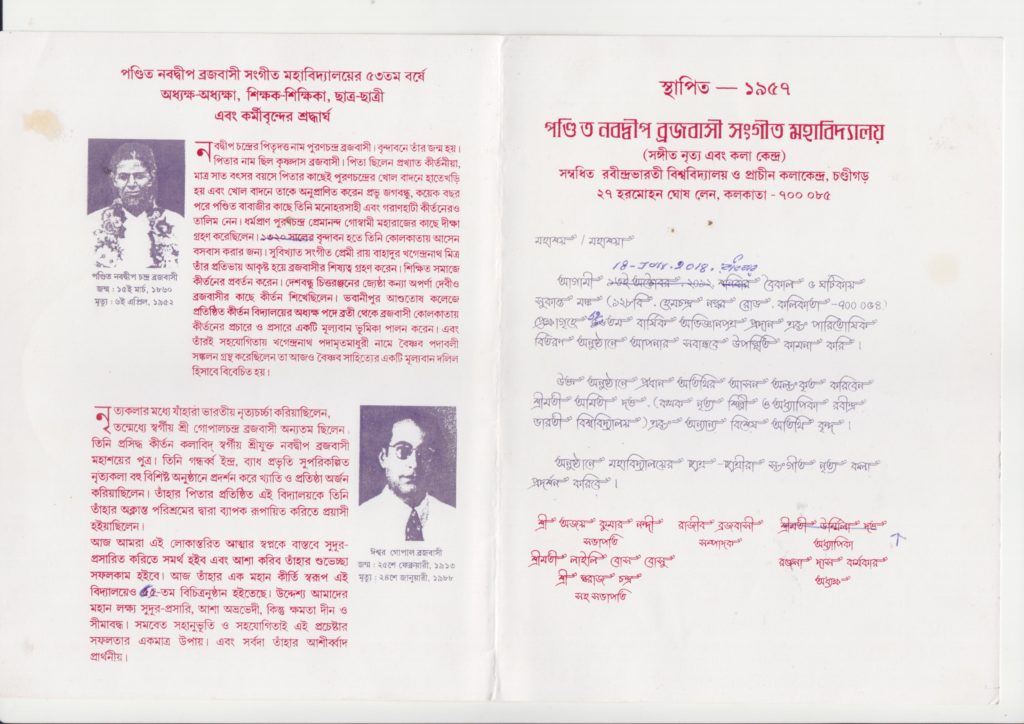 পণ্ডিত নবদ্বীপ ব্রজবাসী সংগীত মহাবিদ্যালয়ের ৫৩তম বর্ষে
অধ্যক্ষ-অধ্যক্ষা, শিক্ষক-শিক্ষিকা, ছাত্র-ছাত্রী
এবং কর্মীবৃন্দের শ্রদ্ধার্ঘ
নবদ্বীপ চন্দ্রের পিতৃদত্ত নাম পুরণচন্দ্র ব্রজবাসী। বৃন্দাবনে তাঁর জন্ম হয়।
পিতার নাম ছিল কৃষ্ণদাস ব্রজবাসী। পিতা ছিলেন প্রখ্যাত কীর্তনীয়া,
মাত্র সাত বৎসর বয়সে পিতার কাছেই পুরণচন্দ্রের খোল বাদনে হাতেখড়ি
হয় এবং খোল বাদনে তাকে অনুপ্রাণিত করেন প্রভু জগবন্ধু, কয়েক বছর
পরে পণ্ডিত বাবাজীর কাছে তিনি মনোহরসাহী এবং গরাণহাটী কীর্তনেরও
তালিম নেন। ধর্মপ্রাণ পুরণচন্দ্র প্রেমানন্দ গোস্বামী মহারাজের কাছে দীক্ষা
গ্রহণ করেছিলেন। ১৩২০ সালের বৃন্দাবন হতে তিনি কোলকাতায় আসেন
বসবাস করার জন্য। সুবিখ্যাত সংগীত প্রেমী রায় বাহাদুর খগেন্দ্রনাথ মিত্র
তাঁর প্রতিভায় আকৃষ্ট হয়ে ব্রজবাসীর শিষ্যত্ব গ্রহণ করেন। শিক্ষিত সমাজে
কীর্তনের প্রবর্তন করেন। দেশবন্ধু চিত্তরঞ্জনের জ্যেষ্ঠা কন্যা অপর্ণা দেবীও
ব্রজবাসীর কাছে কীর্তন শিখেছিলেন। ভবানীপুর আশুতোষ কলেজে
প্রতিষ্ঠিত কীর্তন বিদ্যালয়ের অধ্যক্ষ পদে ব্রতী থেকে ব্রজবাসী কোলকাতায়
কীর্তনের প্রচারে ও প্রসারে একটি মূল্যবান ভূমিকা পালন করেন। এবং
তাঁরই সহযোগিতায় খগেন্দ্রনাথ পদামৃতমাধুরী নামে বৈষ্ণব পদাবলী
সঙ্কলন গ্রন্থ করেছিলেন তা আজও বৈষ্ণব সাহিত্যের একটি মূল্যবান দলিল
হিসাবে বিবেচিত হয়।
পণ্ডিত নবদ্বীপ চন্দ্র ব্রজবাসী
জন্ম : ১৫ই মার্চ, ১৮৬০
মৃত্যু : ৬ই এপ্রিল, ১৯৫২
নৃত্যকলার মধ্যে যাঁহারা ভারতীয় নৃত্যচর্চ্চা করিয়াছিলেন,
তন্মেধ্যে স্বর্গীয় শ্রী গোপালচন্দ্র ব্রজবাসী অন্যতম ছিলেন।
তিনি প্রসিদ্ধ কীর্তন কলাবিদ্ স্বর্গীয় শ্রীযুক্ত নবদ্বীপ ব্রজবাসী
মহাশয়ের পুত্র। তিনি গন্ধর্ব্ব ইন্দ্র, ব্যাধ প্রভৃতি সুপরিকল্পিত
নৃত্যকলা বহু বিশিষ্ট অনুষ্ঠানে প্রদর্শন করে খ্যাতি ও প্রতিষ্ঠা অর্জন
করিয়াছিলেন। তাঁহার পিতার প্রতিষ্ঠিত এই বিদ্যালয়কে তিনি
তাঁহার অক্লান্ত পরিশ্রমের দ্বারা ব্যাপক রূপায়িত করিতে প্রয়াসী
হইয়াছিলেন।
আজ আমরা এই লোকান্তরিত আত্মার স্বপ্নকে বাস্তবে সুদূর-
প্রসারিত করিতে সমর্থ হইব এবং আশা করিব তাঁহার শুভেচ্ছা
সফলকাম হইবে। আজ তাঁহার এক মহান কীর্তি স্বরূপ এই
বিদ্যালয়েও ৫৫-তম বিচিত্রনুষ্ঠান হইতেছে। উদ্দেশ্য আমাদের
মহান লক্ষ্য সুদূর-প্রসারি, আশা অভ্রভেদী, কিন্তু ক্ষমতা দীন ও
সীমাবদ্ধ। সমবেত সহানুভূতি ও সহযোগিতাই এই প্রচেষ্টার
সফলতার একমাত্র উপায়। এবং সর্বদা তাঁহার আশীর্ব্বাদ
প্রার্থনীয়।
ঈশ্বর গোপাল ব্রজবাসী
জন্ম : ২৫শে ফেব্রুয়ারী, ১৯১৩
মৃত্যু : ২৪শে জানুয়ারী, ১৯৮৮
স্থাপিত — ১৯৫৭
পণ্ডিত নবদ্বীপ ব্রজবাসী সংগীত মহাবিদ্যালয়
(সঙ্গীত নৃত্য এবং কলা কেন্দ্র)
সম্বধিত রবীন্দ্রভারতী বিশ্ববিদ্যালয় ও প্রাচীন কলাকেন্দ্র, চণ্ডীগড়
২৭ হরমোহন ঘোষ লেন, কলকাতা - ৭০০ ০৮৫
মহাশয় / মহাশয়া
18-Jan. 2018.
আগামী ১৬ই অক্টোবর - ২০১২, শনিবার বৈকাল ৩ ঘটিকায়
সুকান্ত মঞ্চ (১২৮বি, হেমচন্দ্র নস্কর রোড, কলিকাতা -৭০০ ০৫৪)
প্রেক্ষাগৃহে তম বার্ষিক অভিজ্ঞানপত্র প্রদান এবং পারিতোষিক
বিতরণ অনুষ্ঠানে আপনার সবান্ধবে উপস্থিতি কামনা করি।
উক্ত অনুষ্ঠানে প্রধান অতিথির আসন অলংকৃত করিবেন
শ্রীমতী অমিতা দত্ত, (কত্থক নৃত্য শিল্পী ও অধ্যাপিকা রবীন্দ্র
ভারতী বিশ্ববিদ্যালয়) এবং অন্যান্য বিশেষ অতিথি বৃন্দ।
অনুষ্ঠানে মহাবিদ্যালয়ের ছাত্র ছাত্রীরা সংগীত নৃত্য কলা
প্রদর্শন করিবে।
শ্রী অজয় কুমার নন্দী
সভাপতি
শ্রীমতী লাইলি বোস
শ্রী চন্দ্র
সহ সভাপতি
রাজীব ব্রজবাসী
সম্পাদক
শ্রীমতী ঊর্মিলা দত্ত
অধ্যাপিকা
রঞ্জনা দাস কর্মকার
অধ্যক্ষ